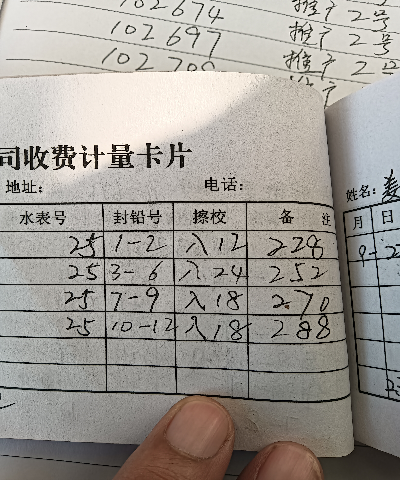 102674 推广2号
102697 推广2号
102700 推广2号
司收费计量卡片
地址: 电话:
水表号 封铅号 擦校 备注
25 1-2 入12 228
25 3-6 入24 252
25 7-9 入18 270
25 10-12 入18 288
姓名:
月 日
9-2